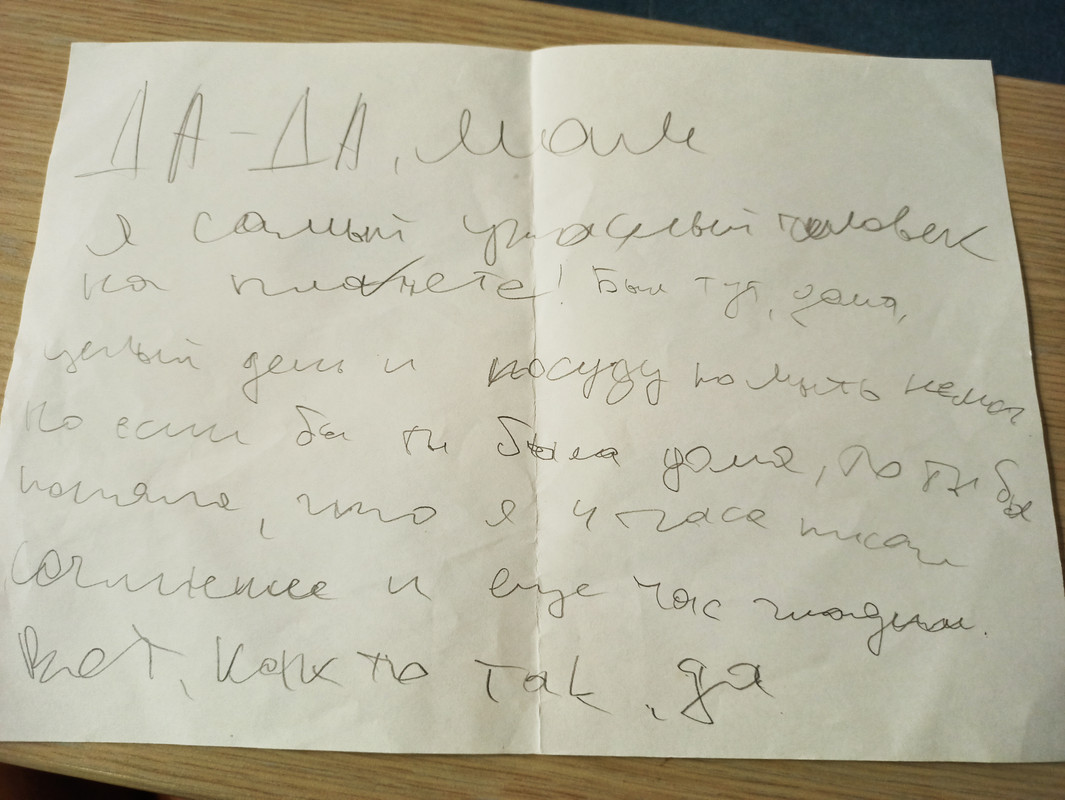 ДА-ДА, мам
я самый ужасный человек
на планете! Был тут, дома,
целый день и посуду помыть немог
Но если бы ты была дома, то ты бы
поняла, что я 4 часа писал
сочинение и еще час
Вот, как то так, да